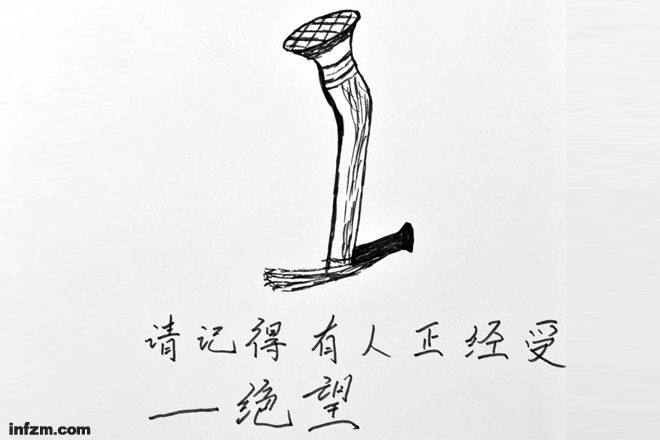 请记得有人正经受
一绝望
infzm.com